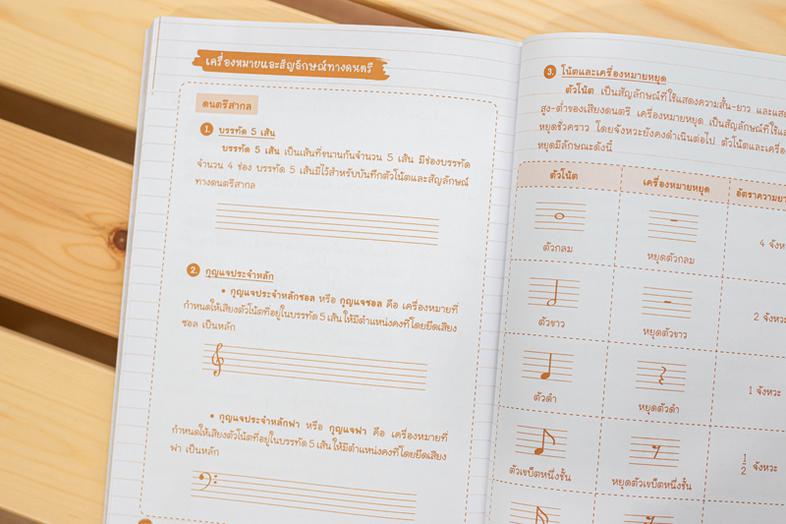 เครื่องหมายและสัญลักษณ์ทางดนตรี
ดนตรีสากล
1. บรรทัด 5 เส้น
บรรทัด 5 เส้น เป็นเส้นที่ขนานกันจำนวน 5 เส้น มีช่องบรรทัด
จำนวน 4 ช่อง บรรทัด 5 เส้นมีไว้สำหรับบันทึกตัวโน้ตและสัญลักษณ์
ทางดนตรีสากล
2. กุญแจประจำหลัก
• กุญแจประจำหลักซอล หรือ กุญแจซอล คือ เครื่องหมายที่
กำหนดให้เสียงตัวโน้ตที่อยู่ในบรรทัด 5 เส้น ให้มีตำแหน่งคงที่โดยยึดเสียง
ซอล เป็นหลัก
• กุญแจประจำหลักฟา หรือ กุญแจฟา คือ เครื่องหมายที่
กำหนดให้เสียงตัวโน้ตที่อยู่ในบรรทัด 5 เส้น ให้มีตำแหน่งคงที่โดยยึดเสียง
ฟา เป็นหลัก
3. โน้ตและเครื่องหมายหยุด
ตัวโน้ต เป็นสัญลักษณ์ที่ใช้แสดงความสั้น-ยาว และแสด
สูง-ต่ำของเสียงดนตรี เครื่องหมายหยุด เป็นสัญลักษณ์ที่ใช้แส
หยุดชั่วคราว โดยจังหวะยังคงดำเนินต่อไป ตัวโน้ตและเครื่อ
หยุดมีลักษณะดังนี้
ตัวโน้ต เครื่องหมายหยุด อัตราความยา
ตัวกลม หยุดตัวกลม 4 จังห
ตัวขาว หยุดตัวขาว 2 จังหว
ตัวดำ หยุดตัวดำ 1 จังหวะ
ตัวเขบ็ตหนึ่งชั้น หยุดตัวเขบ็ตหนึ่งชั้น 1/2 จังหวะ